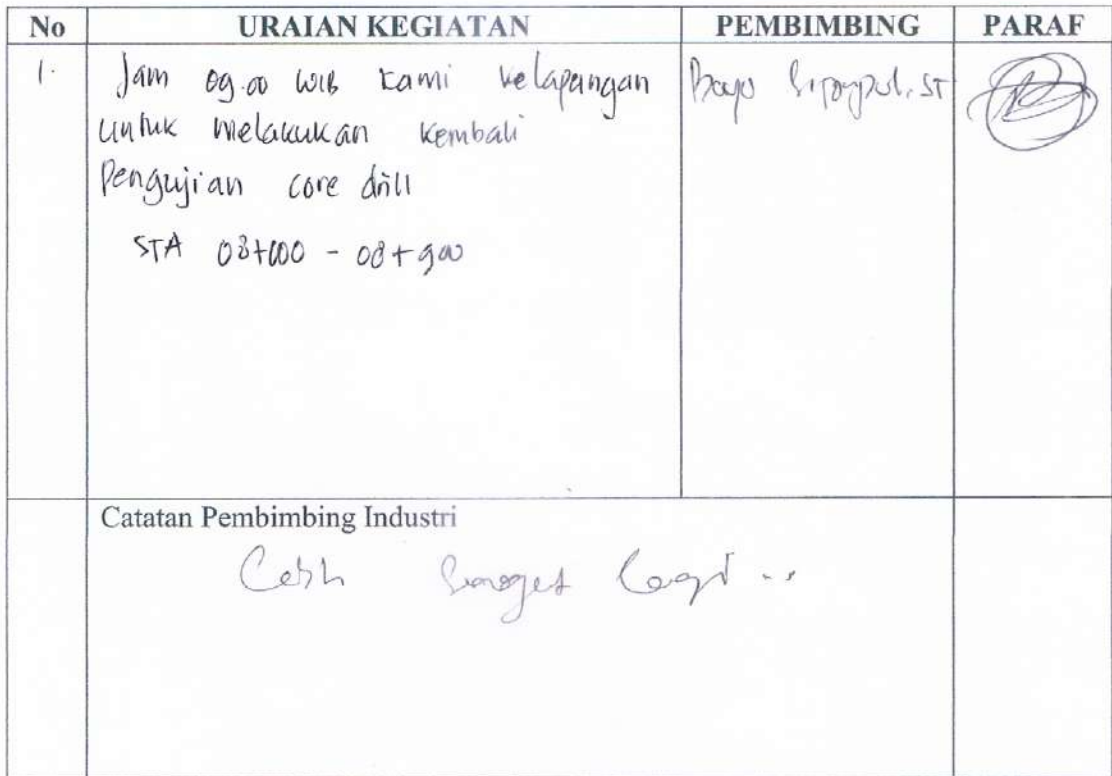 No URAIAN KEGIATAN PEMBIMBING PARAF
1. Jam 09.00 WIB kami kelapangan
untuk melakukan kembali
Pengujian core drill
STA 08+000 - 08+900
ST
Catatan Pembimbing Industri
lagi ..